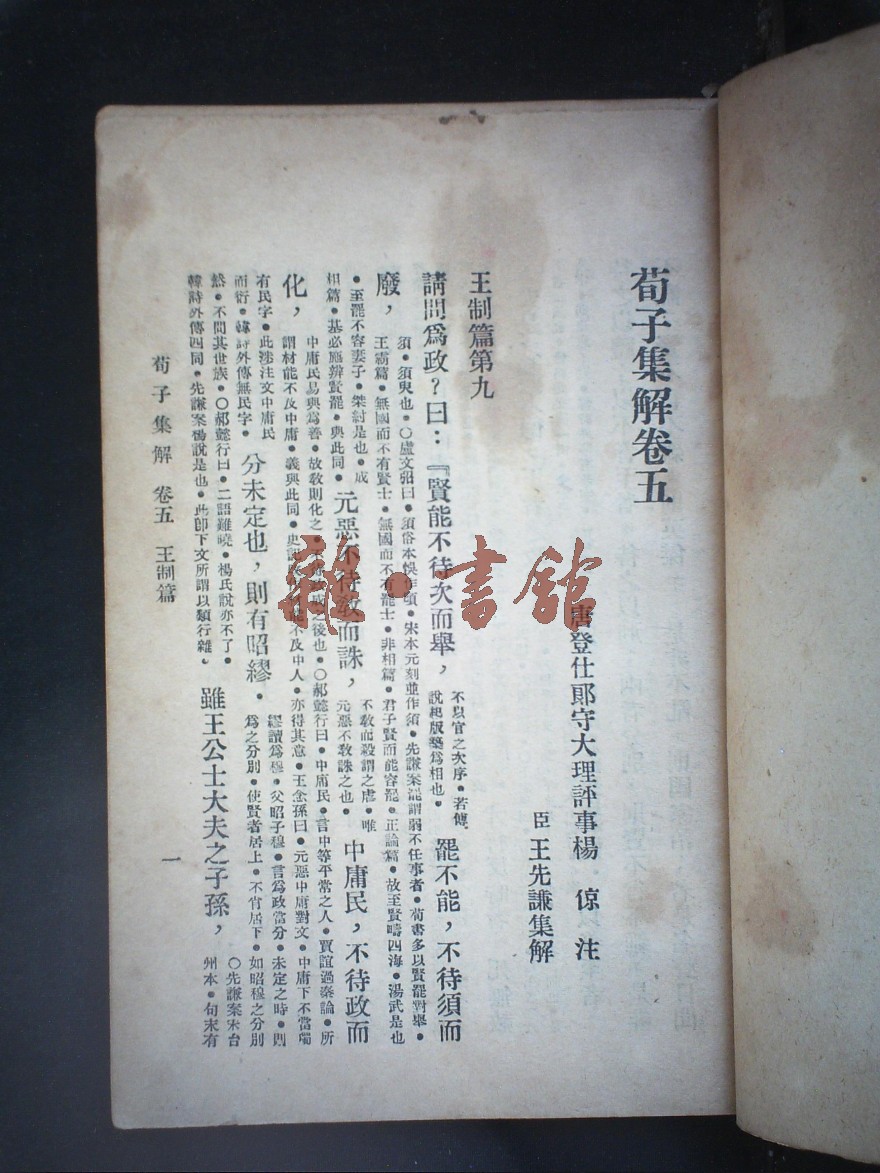 荀子集解卷五
唐登仕郎守大理評事楊 倞 注
臣 王先謙集解
王制篇第九
請問爲政?曰:『賢能不待次而舉,
不以官之次序●若傅
說起版築爲相也●
罷不能,不待須而
廢,
須●須臾也●○盧文弨曰●須俗本悞作頃●宋本元刻並作須●先謙案罷謂弱不任事者●荀書多以賢罷對舉●
王霸篇●無國而不有賢士●無國而不有罷士●非相篇●君子賢而能容罷●正論篇●故至賢疇四海●湯武是也
●至罷不容妻子●桀紂是也●成
相篇●基必施辨賢罷●與此同●
元惡不待教而誅,
不教而殺謂之虐●唯
元惡不教誅之也●
中庸民,不待政而
化,
中庸民易與爲善●故教則化之●不待政成之後也●○郝懿行曰●中庸民●言中等平常之人●賈誼過秦論●所
謂材能不及中庸●義與此同●史記能不及中人●亦得其意●王念孫曰●元惡中庸對文●中庸下不當
有民字●此涉注文中庸民
而衍●韓詩外傳無民字●
分未定也,則有昭繆●
繆讀爲穆●父昭子穆●言爲政當分●未定之時●則
爲之分別●使賢者居上●不肖居下●如昭穆之分別
然●不問其世族●○郝懿行曰●二語難曉●楊氏說亦不了●
韓詩外傳四同●先謙案楊說是也●此卽下文所謂以類行雜●
雖王公士大夫之子孫,
○先謙案宋台
州本●句末有
荀子集解 卷五 王制篇 一
雜·書館